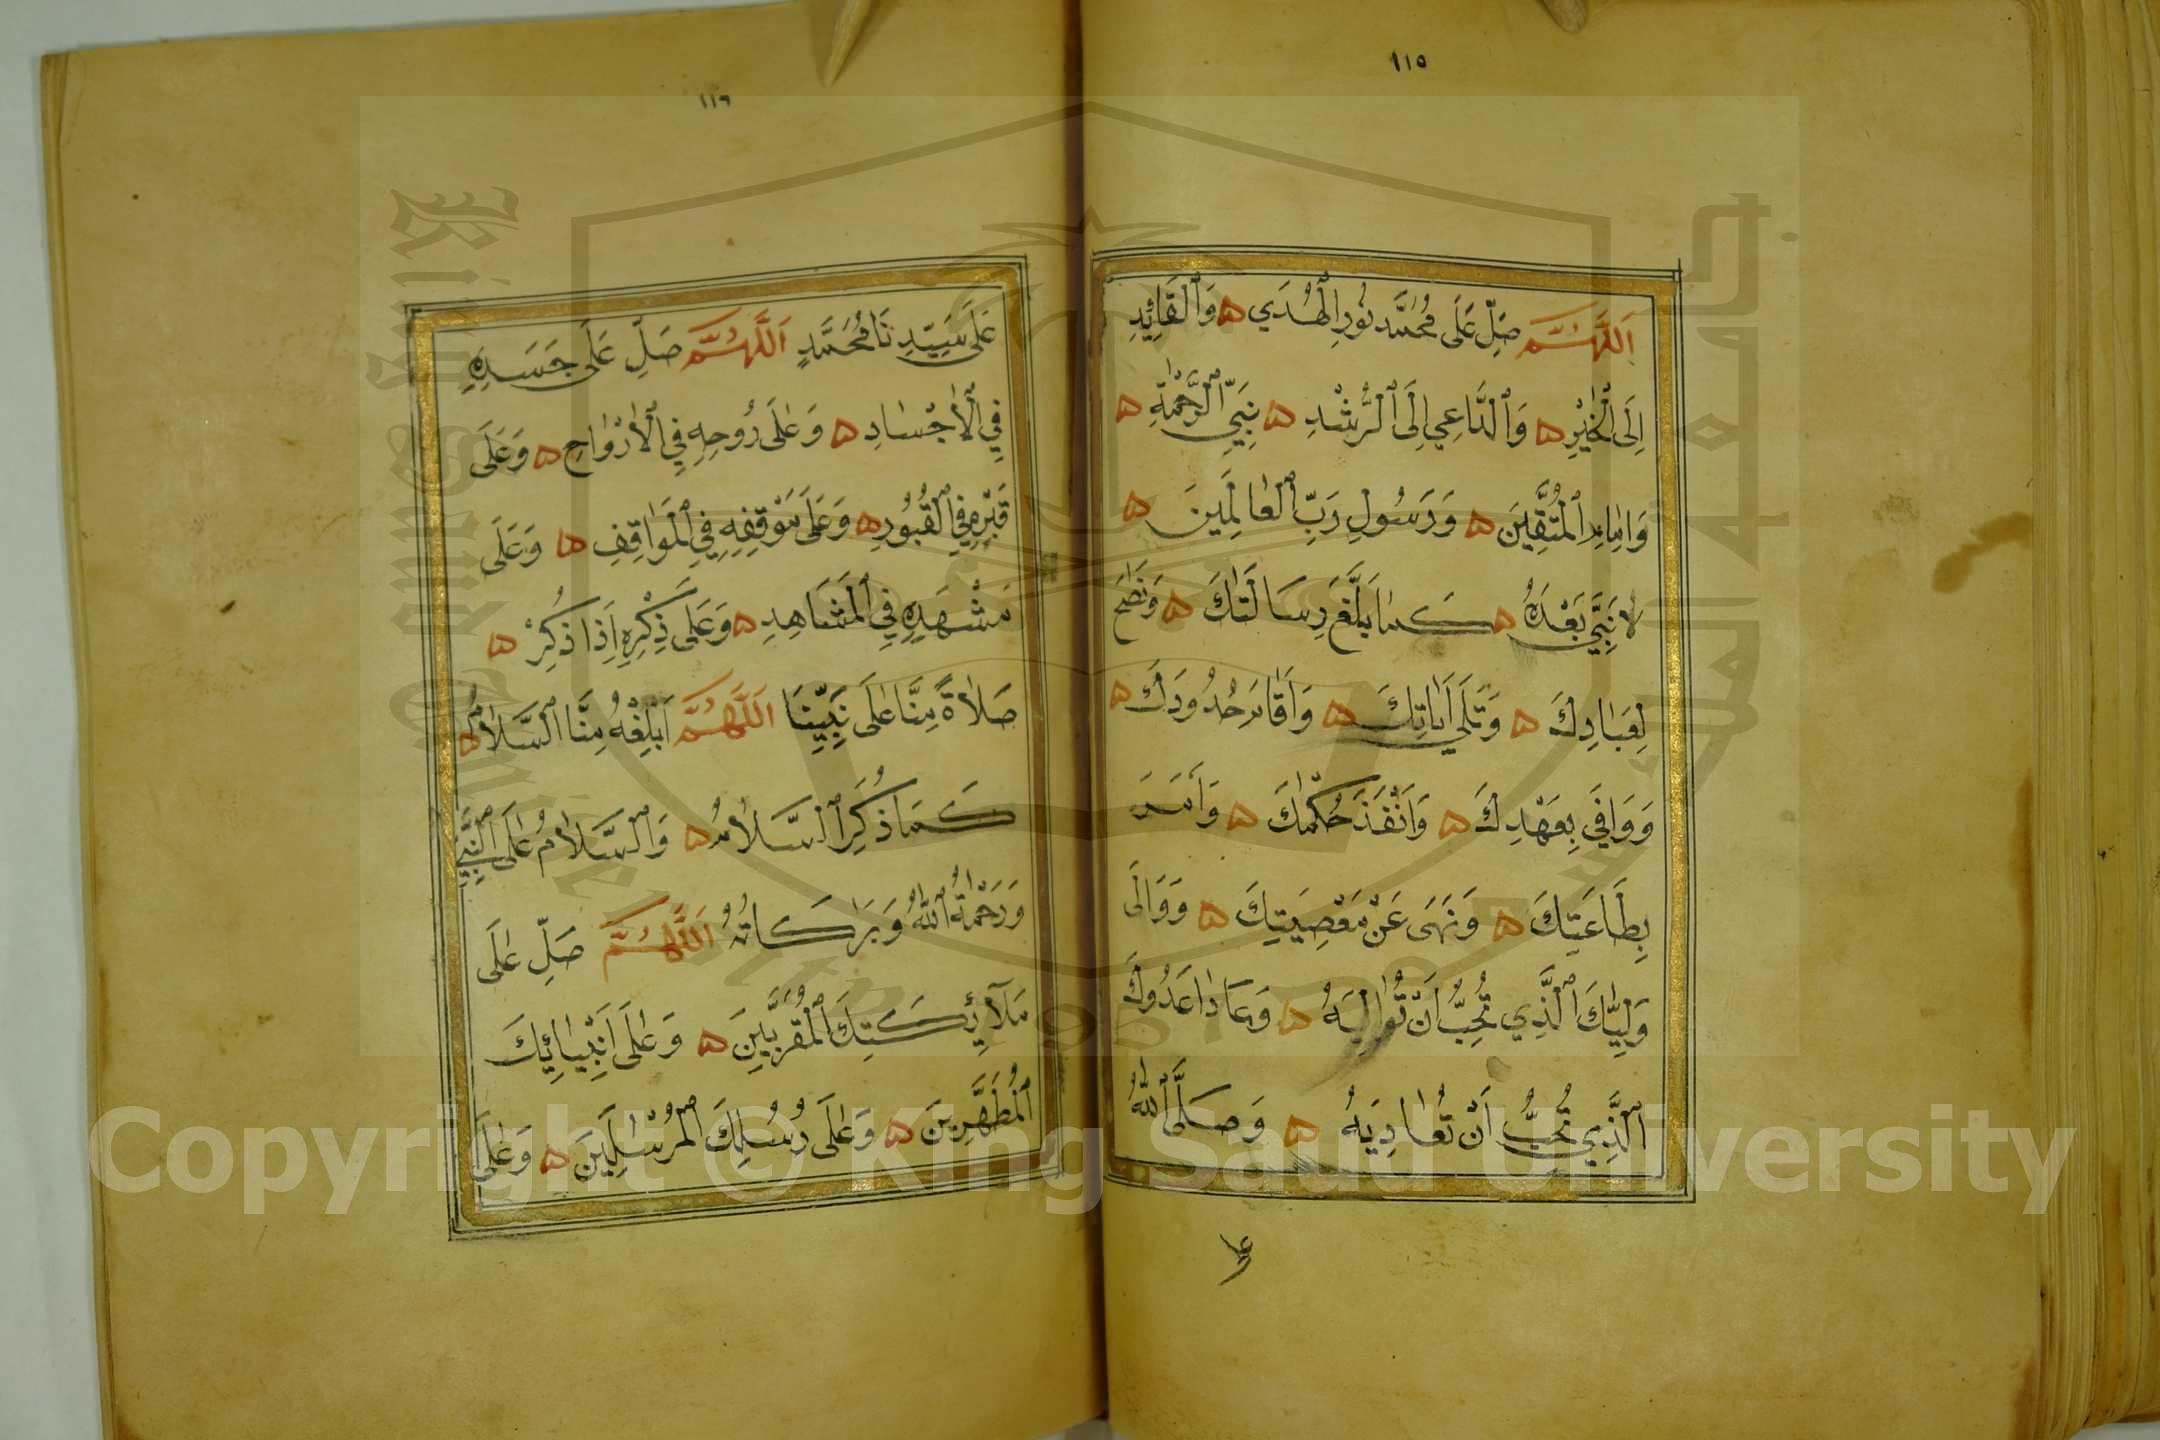 ١١٥
اَللَّهُمَّ صَلِّ عَلَى مُحَمَّدٍ نُورِ الْهُدَي ه وَالْقَائِدِ
اِلَى الْخَيْرِ ه وَالدَّاعِي اِلَى الرُّشْدِ ه نَبِيِّ الرَّحْمَةِ ه
وَاِمَامِ الْمُتَّقِينَ ه وَرَسُولِ رَبِّ الْعَالَمِينَ ه
لاَ نَبِيَّ بَعْدَهُ ه كَمَا بَلَّغَ رِسَالَتَكَ ه وَنَصَحَ
لِعِبَادِكَ ه وَتَلَي اَيَاتِكَ ه وَاَقَامَ حُدُودَكَ ه
وَوَافَي بِعَهْدِكَ ه وَاَنْفَذَ حُكْمَكَ ه وَاَمَرَ
بِطَاعَتِكَ ه وَنَهَى عَنْ مَعْصِيَتِكَ ه وَوَالَى
وَلِيَّكَ الَّذِي تُحِبُّ اَنْ تُوَالِيَهُ ه وَعَادَا عَدُوَّكَ
الَّذِي تُحِبُّ اَنْ تُعَادِيَهُ ه وَصَلَّى اللّٰهُ
على
١١٦
عَلَى سَيِّدِنَا مُحَمَّدٍ اَللَّهُمَّ صَلِّ عَلَى جَسَدِهِ
فِي الْاَجْسَادِ ه وَعَلَى رُوحِهِ فِي الْاَرْوَاحِ ه وَعَلَى
قَبْرِهِ فِي الْقُبُورِ ه وَعَلَى مَوْقِفِهِ فِي الْمَوَاقِفِ ه وَعَلَى
مَشْهَدِهِ فِي الْمَشَاهِدِ ه وَعَلَى ذِكْرِهِ اِذَا ذُكِرْ ه
صَلاَةً مِنَّا عَلَى نَبِيِّنَا اَللَّهُمَّ اَبْلِغْهُ مِنَّا السَّلاَمُ ه
كَمَا ذُكِرَ السَّلاَمُ ه وَالسَّلاَمُ عَلَى النَّبِيِّ
وَرَحْمَةُ اللّٰهُ وَبَرَكَاتُهُ اَللَّهُمَّ صَلِّ عَلَى
مَلآئِكَتِكَ الْمُقَرَّبِينَ ه وَعَلَى اَنْبِيَائِكَ
الْمُطَهَّرِينَ ه وَعَلَى رُسُلِكَ الْمُرْسَلِينَ ه وَعَلَى
Copyright © King Saud University